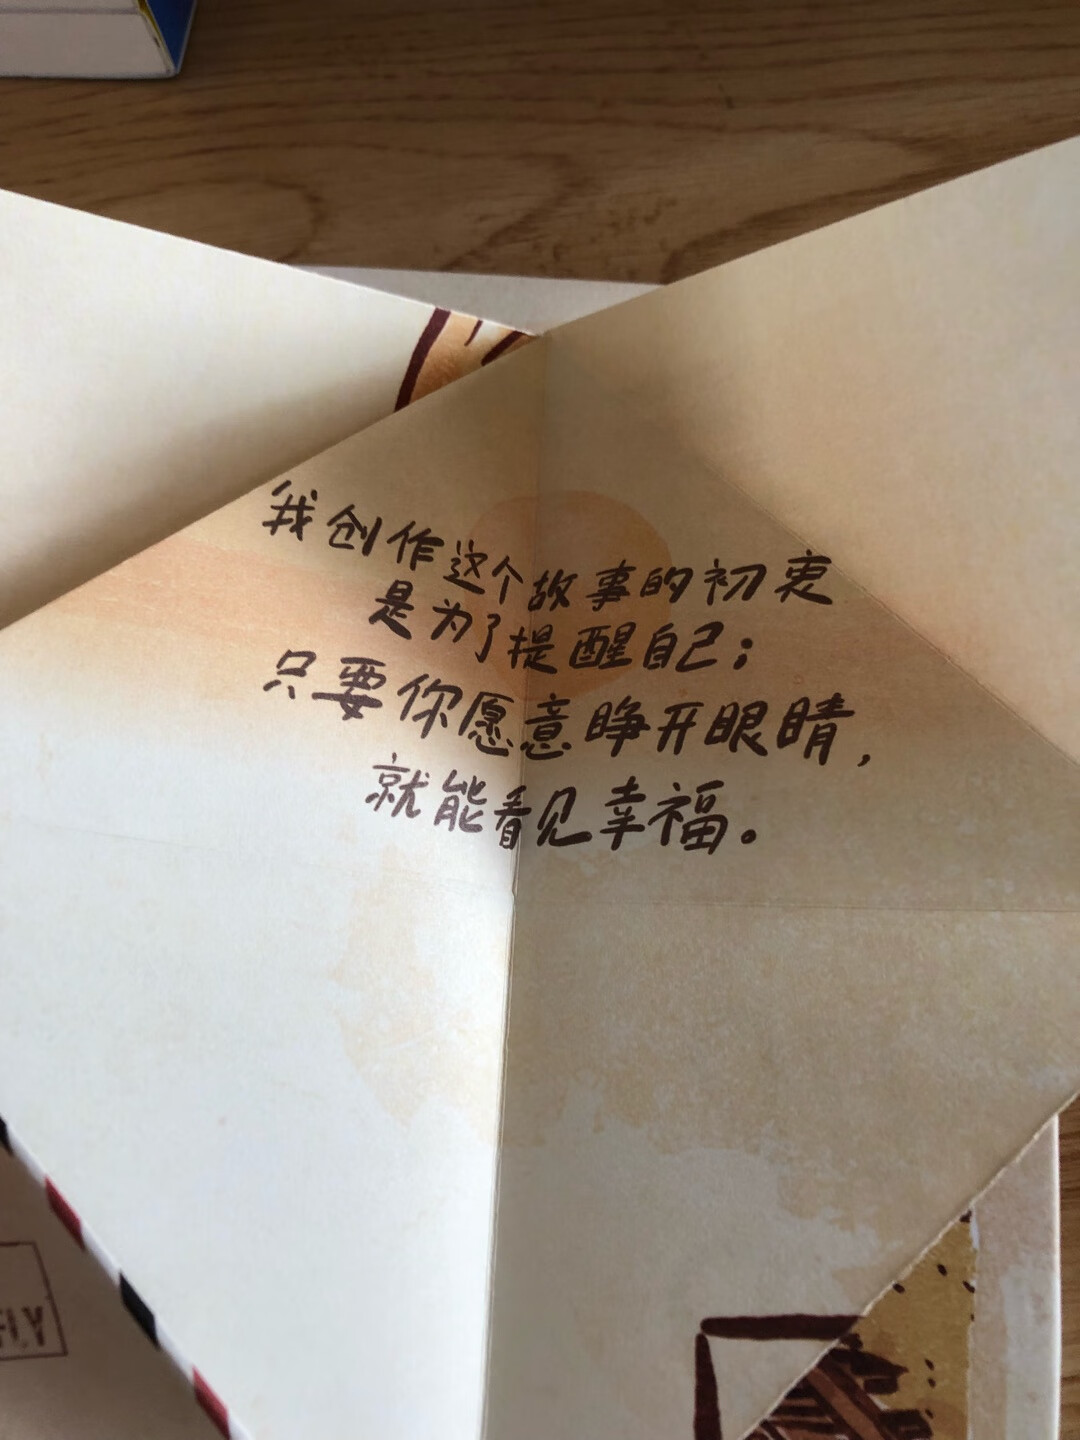 我创作这个故事的初衷
是为了提醒自己；
只要你愿意睁开眼睛，
就能看见幸福。